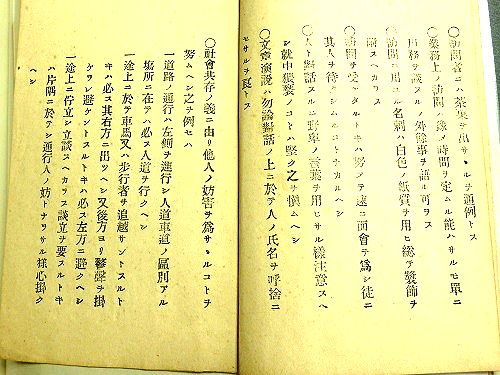 ○訪問者ニハ茶菓ヲ出サヽルヲ通例トス
○業務上ノ訪問ハ豫メ時間ヲ定ムル能ハサルモ單ニ
用務ヲ談スルノ外餘事ヲ語ル可ラス
○訪問ニ用ユル名刺ハ白色ノ紙質ヲ用ヒ總テ裝飾ヲ
用スヘカラス
○訪問ヲ受ケタルトキハ努メテ速ニ面會ヲ爲シ徒ニ
其人ヲ待タシムルコトナカルヘシ
○人ト對話スルニ野卑ノ言葉ヲ用ヒサル樣注意スヘ
シ就中猥褻ノコトハ堅ク之ヲ愼ムヘシ
○文章演説ハ勿論對話ノ上ニ於テ人ノ氏名ヲ呼捨ニ
セサルヲ良トス
○社會共存ノ義ニ由リ他人ノ妨害ヲ爲サヽルコトヲ
努ムヘシ之ヲ例セハ
一道路ノ通行ハ左側ヲ進行シ人道車道ノ區別アル
塲所ニ在テハ必ス人道ヲ行クヘシ
一途上ニ於テ車馬又ハ歩行者ヲ追越サントスルト
キハ必ス其右方ニ出ツヘシ又後方ヨリ警聲ヲ掛
ケラレ避ケントスルトキハ必ス左方ニ避クヘシ
一途上ニ佇立シ立談スヘカラス談立ヲ要スルトキ
ハ片隅ニ於テシ通行人ノ妨トナラサル樣心掛ク
ヘシ